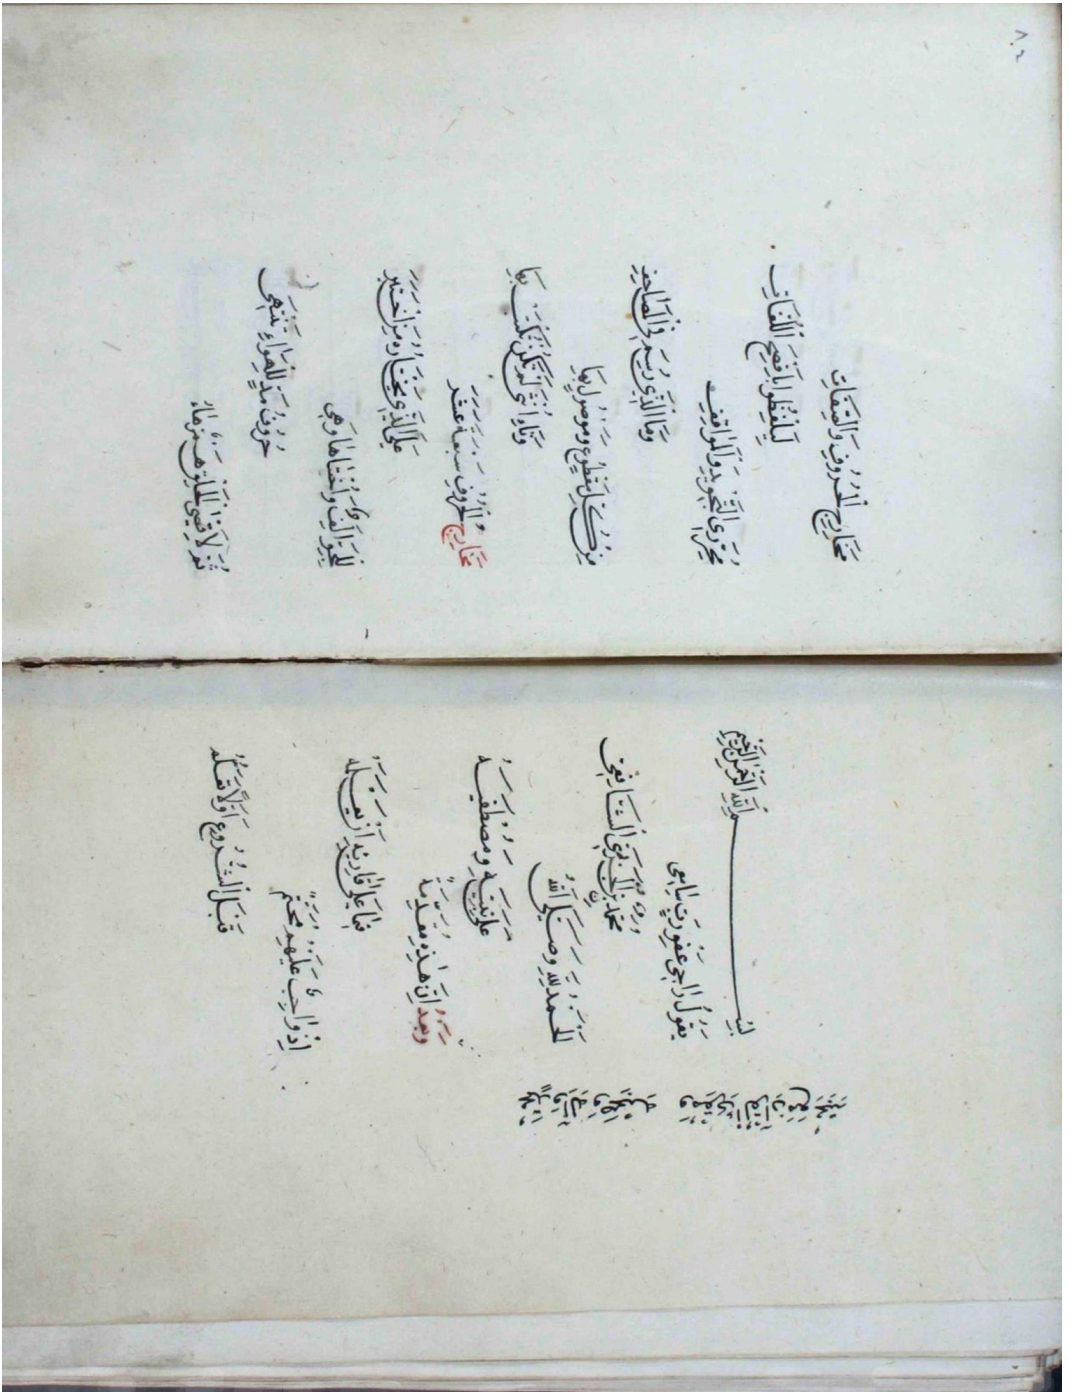 بِسْمِ اللهِ الرَّحْمٰنِ الرَّحِيمِ
يَقُولُ رَاجِي عَفْوِ رَبٍّ سَامِعِ
مُحَمَّدُ بْنُ الْجَزَرِيِّ الشَّافِعِي
اَلْحَمْدُ لِلّٰهِ وَصَلَّى اللهُ
عَلَى نَبِيِّهِ وَمُصْطَفَيهُ
مُحَمَّدٍ وَآلِهِ وَصَحْبِهِ
وَمُقْرِئِ الْقُرْآنِ مَعْ مُحِبِّهِ
وَبَعْدُ اِنَّ هٰذِهِ مُقَدِّمَةٌ
فِيمَا عَلَى قَارِئِهِ اَنْ يَعْلَمَهُ
اِذْ وَاجِبٌ عَلَيْهِمُ مُحَتَّمٌ
قَبْلَ الشُّرُوعِ اَوَّلًا
مَخَارِجَ الْحُرُوفِ وَالصِّفَاتِ
لِيَلْفِظُوا بِاَفْصَحِ اللُّغَاتِ
مُحَرِّرِي التَّجْوِيدِ وَالْمَوَاقِفِ
وَمَا الَّذِي رُسِمَ فِي الْمَصَاحِفِ
مِنْ كُلِّ مَقْطُوعٍ وَمَوْصُولٍ بِهَا
وَتَاءِ اُنْثَى لَمْ تَكُنْ تُكْتَبْ بِهَا
مَخَارِجُ الْحُرُوفِ سَبْعَةَ عَشَرَ
عَلَى الَّذِي يَخْتَارُهُ مَنِ اخْتَبَرَ
وَاُخْتَاهَا وَهِيَ
حُرُوفُ مَدٍّ لِلْهَوَاءِ تَنْتَهِي
ثُمَّ لِاَقْصَى الْحَلْقِ هَمْزٌ هَاءُ